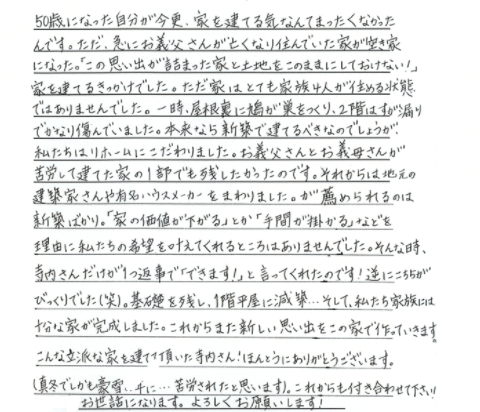 50歳になった自分が今更、家を建てる気なんてまったくなかった
んです。ただ、急にお義父さんが亡くなり住んでいた家が空き家
になった。「この思い出が詰まった家と土地をこのままにしておけない!」
家を建てるきっかけでした。ただ家はとても家族4人が住める状態
ではありませんでした。一時、屋根裏に鳩が巣をつくり、2階はすが漏り
でかなり傷んでいました。本来なら新築で建てるべきなのでしょうが、
私たちはリホームにこだわりました。お義父さんとお義母さんが
苦労して建てた家の1部でも残したかったのです。それからは地元の
建築家さんや有名ハウスメーカーをまわりました。が薦められるのは
新築ばかり。「家の価値が下がる」とか「手間が掛かる」などを
理由に私たちの希望を叶えてくれるところはありませんでした。そんな時、
寺内さんだけが1つ返事で「できます!」と言ってくれたのです!逆にこちらが
びっくりでした(笑)。基礎を残し、1階平屋に減築…そして、私たち家族には
十分な家が完成しました。これからまた新しい思い出をこの家で作っていきます。
こんな立派な家を建てて頂いた寺内さん!ほんとうにありがとうございます。
(真冬でしかも豪雪…千に…苦労されたと思います)。これからも付き合わせて下さい!
お世話になります。よろしくお願いします!